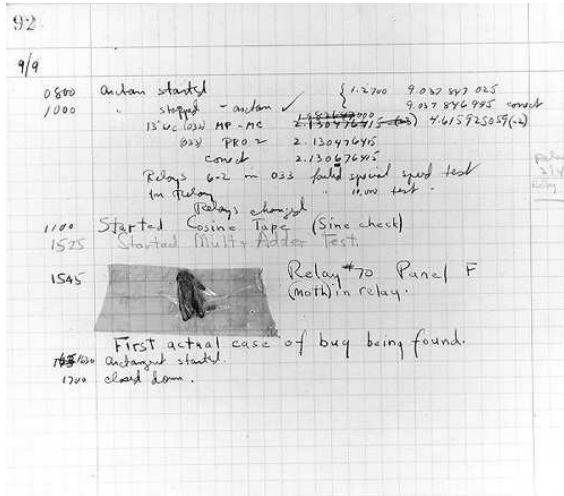 92
9/9
0800 Antan started
1000 " stopped - antan ✓ { 1.2700 9.037 847 025
9.037 846 995 correct
13"uc (032) MP - MC 2.130476415 (-3) 4.615925059(-2)
(033) PRO 2 2.130476415
correct 2.130676415
Relays 6-2 in 033 failed special speed test
in Relay " 10.000 test.
Relays changed
1100 Started Cosine Tape (Sine check)
1525 Started Mult + Adder Test.
1545 Relay #70 Panel F
(moth) in relay.
First actual case of bug being found.
1630 Antangent started.
1700 closed down.